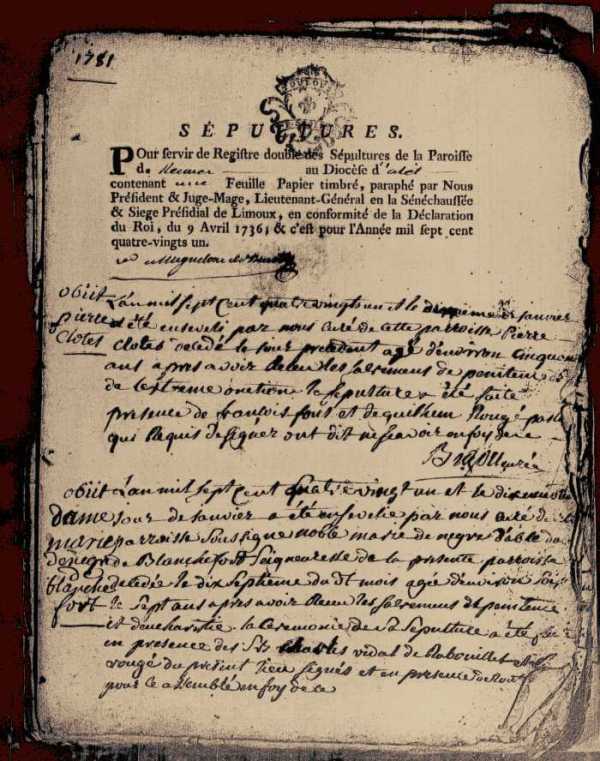 1781
SÉPULTURES.
POur servir de Registre double des Sépultures de la Paroisse
de Rennes au Diocèse d'alet
contenant une Feuille Papier timbré, paraphé par Nous
Président & Juge-Mage, Lieutenant-Général en la Sénéchaussée
& Siege Présidial de Limoux, en conformité de la Déclaration
du Roi, du 9 Avril 1736; & c'est pour l'Année mil sept cent
quatre-vingts un.
obiit L'an mil sept Cent quatre vingt un et le janvier
pierre a été enseveli par nous curé de cette parroisse Pierre
Clotes Clotes décédé le jour précédent agé d'environ Cinquante
ans apres avoir Receu les sacremens de penitence et
de l'extreme onction la sepulture a été faite
presence de françois font et de guilhem Rougé
qui Requis de signer ont dit ne scavoir en foy de ce
curé
obiit L'an mil sept Cent quatre vingt un et le
dame jour de janvier a été ensevelie par nous curé de
marie parroisse soussigné noble marie de negre Dable
de negre de Blanchefort seigneuresse de la presente parroisse
blanche decedée le dix septieme du dt mois agée d'environ
fort sept ans apres avoir Receu les sacremens de penitence
et d'eucharistie la Ceremonie de sa sepulture a été
en presence des Srs Charles vidal de Rabouillet
rougé du present lieu signés et en presence de
pour ce assemblé en foy de ce